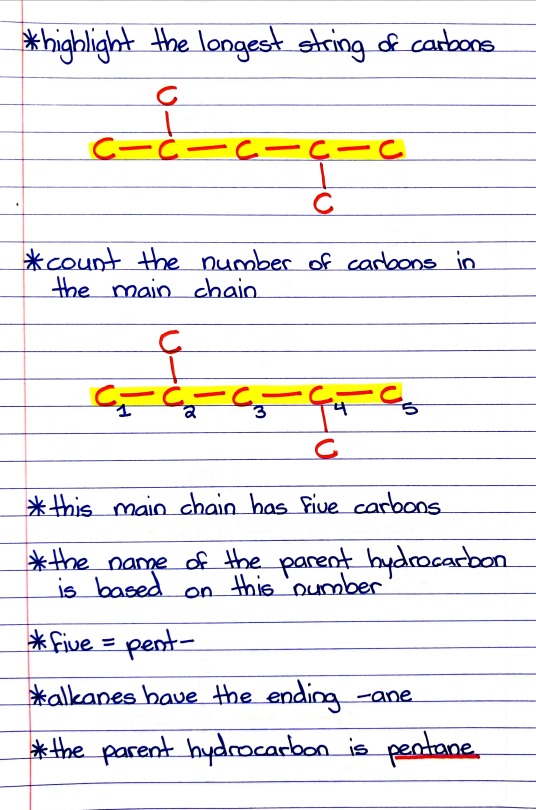 *highlight the longest string of carbons
C
C — C — C — C — C
C
*count the number of carbons in
the main chain
C
C1 — C2 — C3 — C4 — C5
C
*this main chain has five carbons
*the name of the parent hydrocarbon
is based on this number
*five = pent-
*alkanes have the ending -ane
*the parent hydrocarbon is pentane